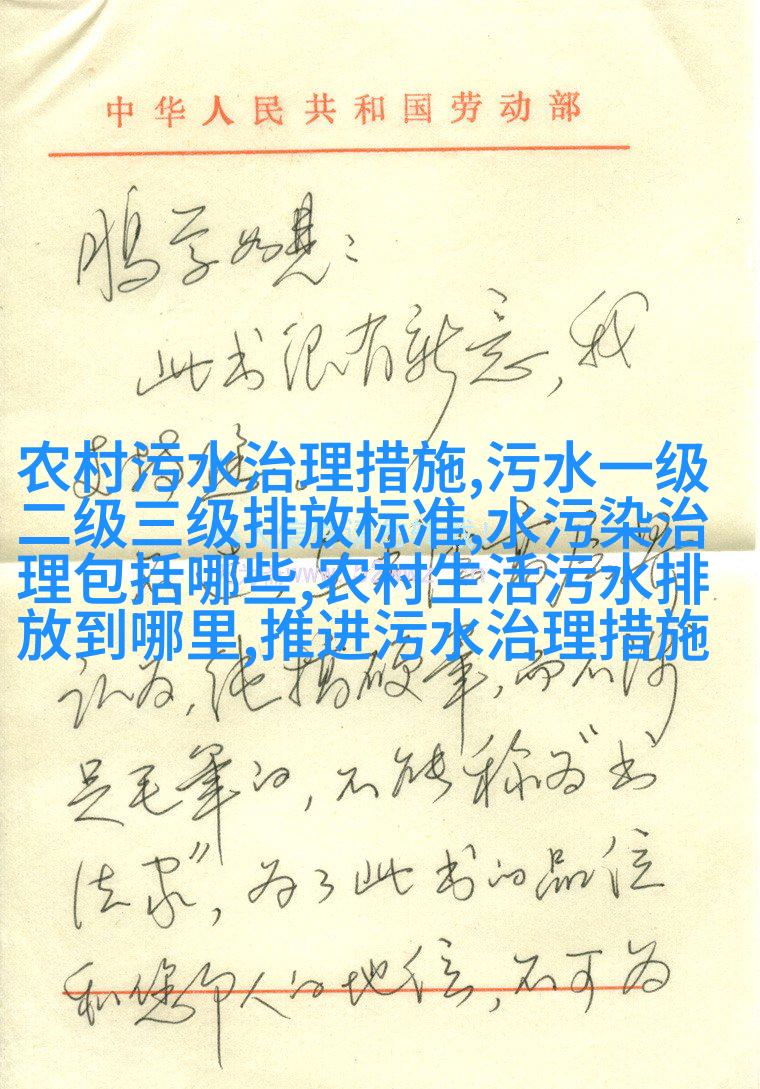 中华人民共和国劳动部
鹏学如晤：
此书很有新意，我
农村污水治理措施,污水一级
二级三级排放标准,水污染治
理包括哪些,农村生活污水排
放到哪里,推进污水治理措施
认为，纯搞硬笔，而不涉
足毛笔的，不能称为“书
法家”，为了此书的品位
和您个人的地位，不可为